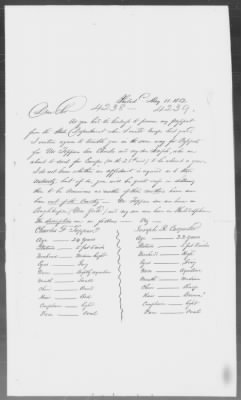 Philad. May 11. 1852
4238 — 4239.
Dear Sir
As you had the kindness to procure my passport
from the State Department when I went to Europe last year,
I venture again to trouble you in the same way for Passports
for Mr Toppan son Charles and my son Joseph, who are
about to sail for Europe (on the 21st inst) to be absent a year.
I do not know whether an affidavit is required as to their
nativity, but if so, you will be good enough in
that to be as neither of them have ever
been out of the Country — Mr Toppan was born in
and my son was born in Philadelphia
The descriptions are as follows — Viz —
Charles F. Toppan
Age — 24 years
Stature — 5 feet
Forehead — Medium height
Eyes — Grey
Nose — Slightly aquiline
Mouth — Small
Chin — Round
Hair — Red
Complexion — Light
Face — Oval
Joseph R. Carpenter
Age — 22 years
Stature — 5 feet
Forehead — High
Eyes — Grey
Nose — Aquiline
Mouth — Medium
Chin —
Hair — Brown
Complexion — Light
Face — Oval